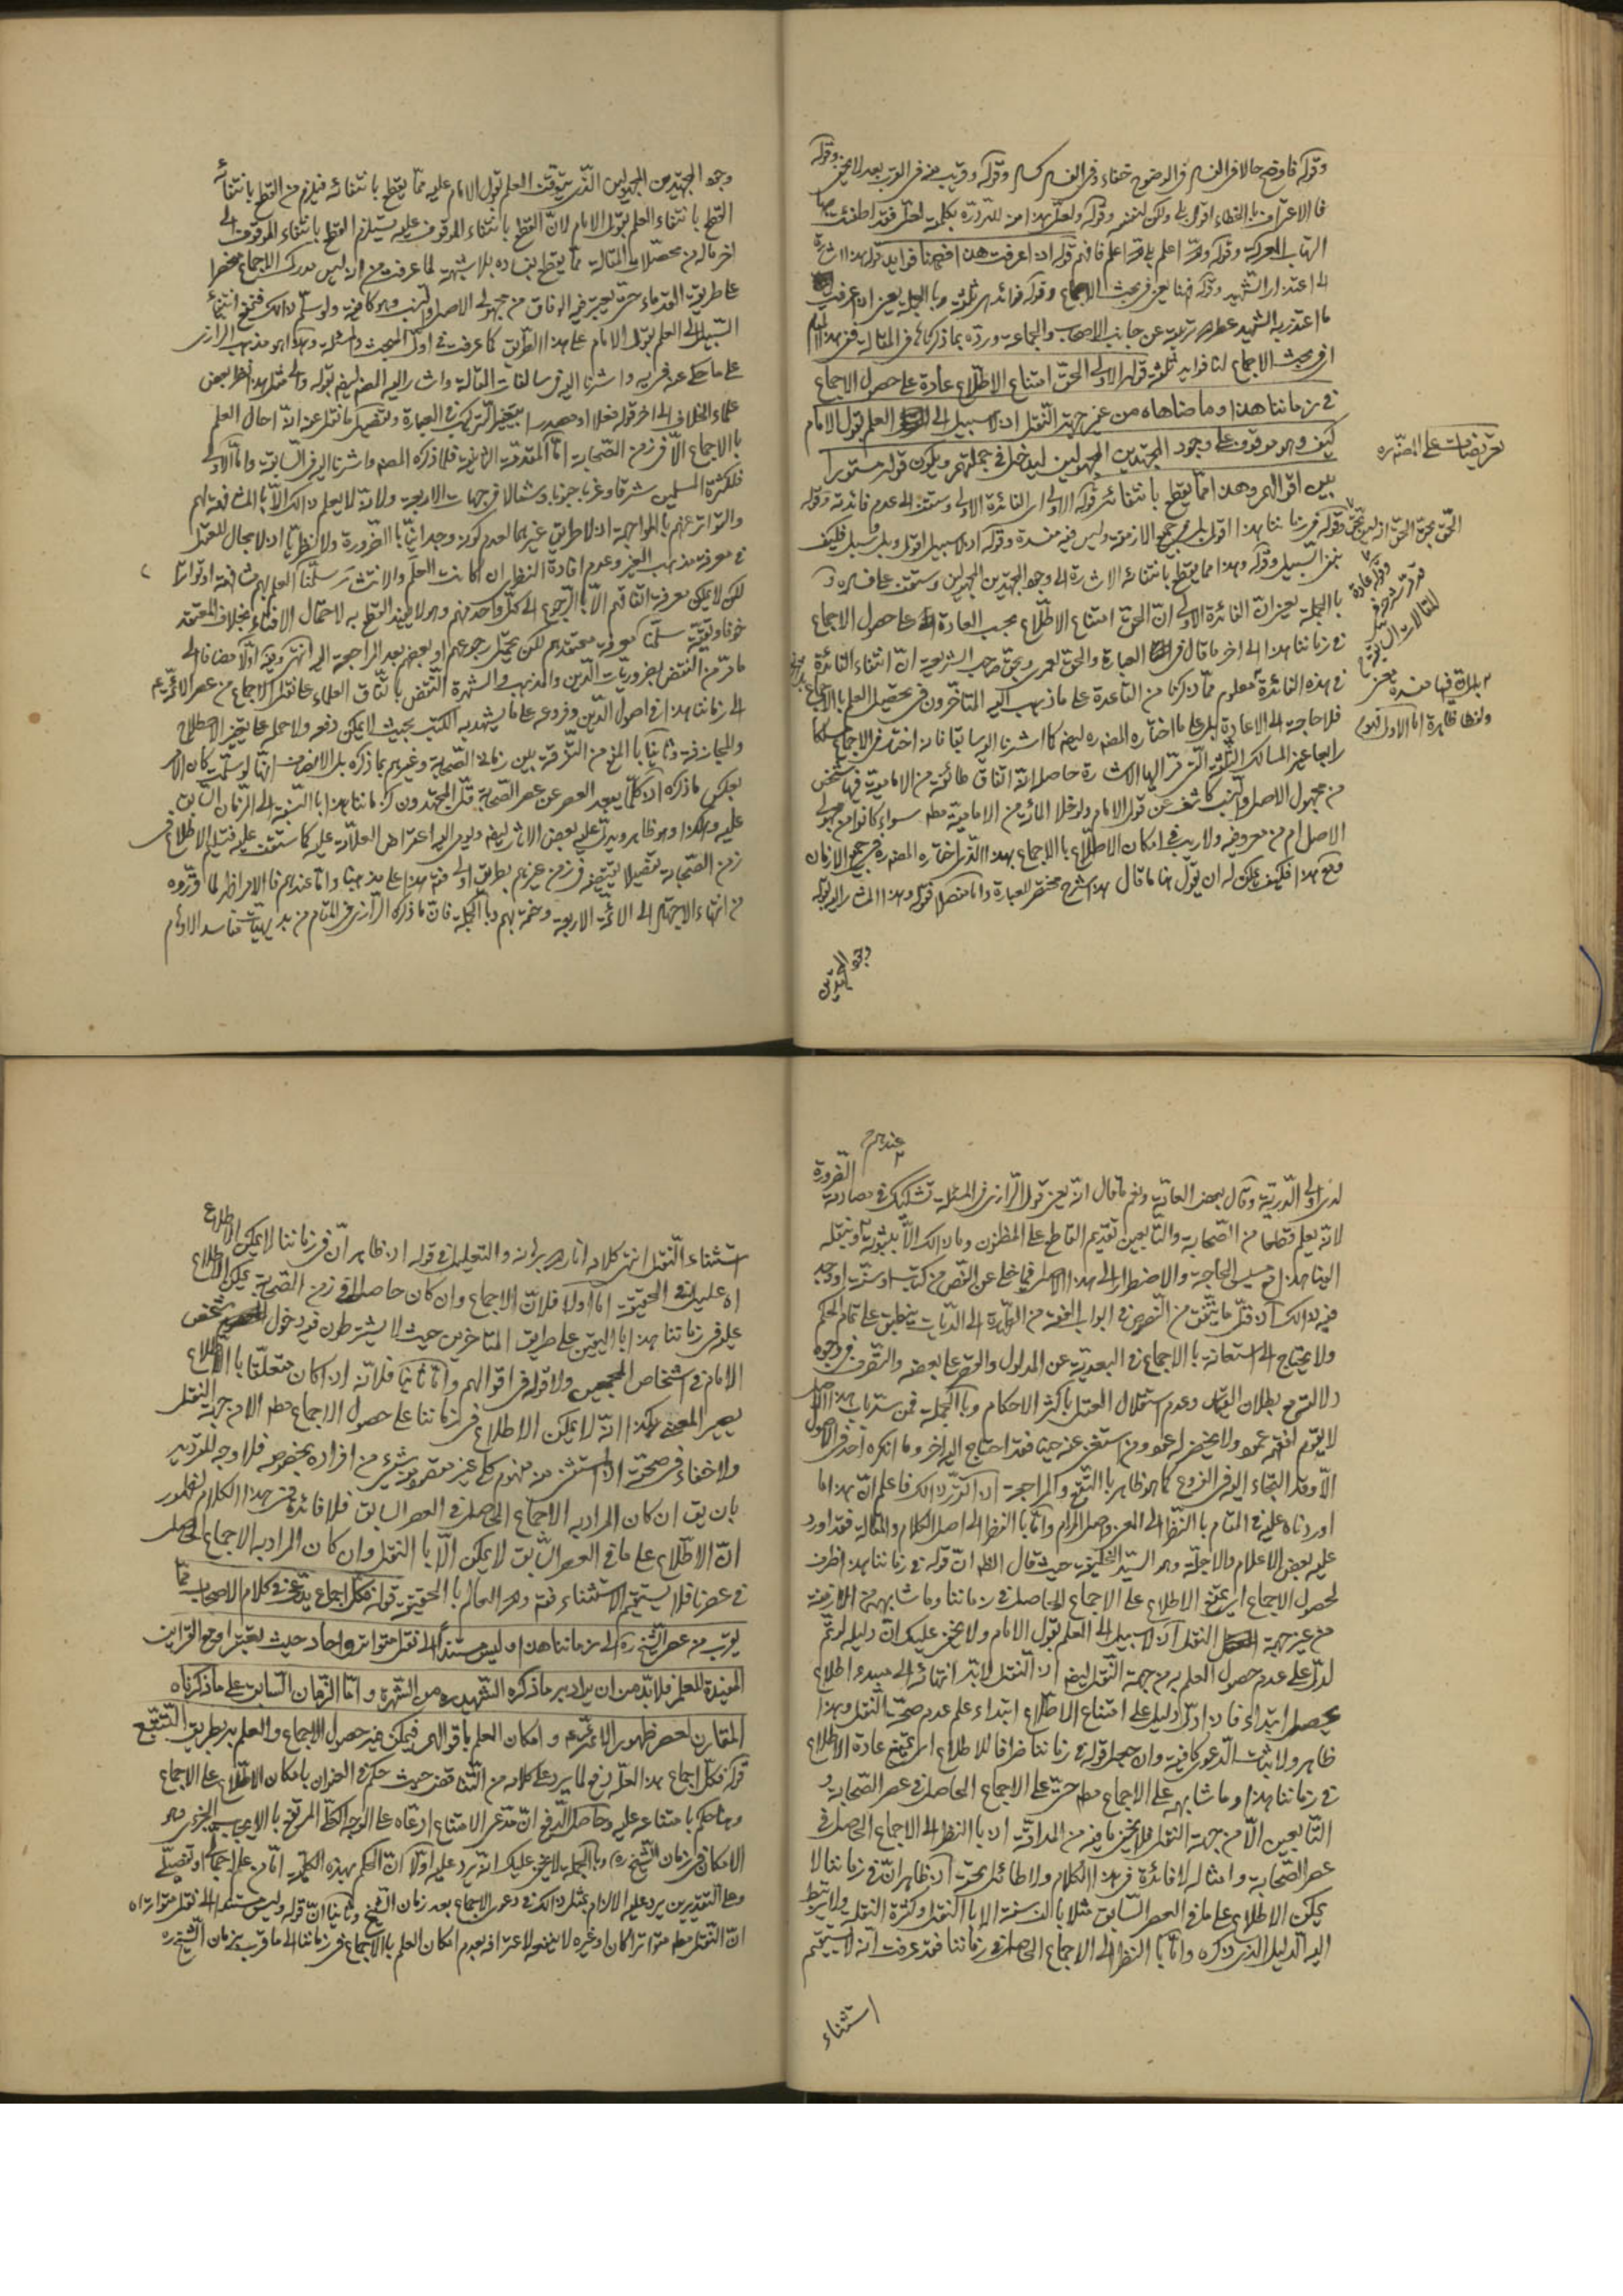 وقوله فاوضح حالا فى الفساد فى الوضوح خفاء وفى الفساد كساد وقوله وقريب منه فى الورب بعد لا يخفى وقوله
فالاعتراف بالخطاء اقول بلى ولكن لنفسه وقوله ولعل هذا من للتردد بكلمة لعل فقد اطفئت بها
التهاب المعركة وقوله والله اعلم بل الله اعلم فافهم قوله اذا عرفت هذا فههنا فوايد قوله هذا اشارة
الى اعتذار الشهيد وقوله فههنا يعنى فى مبحث الاجماع وقوله فوائد هى ثلثة وبالجملة يعنى اذا عرفت
ما اعتذر به الشهيد عن جانب الاصحاب والجماعة ورده بما ذكر فى المقالة ففى هذا المقام
اى فى مبحث الاجماع لنا فوايد ثلثة قوله الاولى الحق امتناع الاطلاع عادة على حصول الاجماع
فى زماننا هذا وما ضاهاه من غير جهة النقل اذ لا سبيل الى العلم بقول الامام
كيف وهو موقوف على وجود المجتهدين المجهولين ليدخل فى جملتهم ويكون قوله مستورا
بين اقوالهم وهذا مما يقطع بانتفائه قوله الاولى اى الفائدة الاولى وستقف الى عدم فائدته وقوله
الحق بحق الحق انه ليس بحق وقوله فى زماننا هذا اقول بل فى جميع الازمنة وليس فيه مفسدة وقوله اذ لا سبيل اقول وبل سبيل فكيف
بنفى السبيل وقوله وهذا مما يقطع بانتفائه الاشارة الى وجود المجتهدين المجهولين وستقف على فساده و
بالجملة يعنى ان الفائدة الاولى ان الحق امتناع الاطلاع بحسب العادة على حصول الاجماع
فى زماننا هذا الى اخر ما قال فى العبارة والحق لعمرى وبحق صاحب الشريعة ان انتفاء الفائدة
فى هذه الفائدة معلوم مما ذكرنا من القاعدة على ما ذهب اليه المتاخرون فى تحصيل العلم بالاجماع
فلا حاجة الى الاعادة بل على ما اختاره المصنف ره ايضا كما اشرنا اليه سابقا فانه اختار فى الاجماع مسلكا
رابعا غير المسالك الثلثة التى مر اليها الاشارة حاصله انه اتفاق طائفة من الامامية فيها شخص
من مجهول الاصل والنسب كاشف عن قول الامام ولو خلا المائة من الامامية مطلقا سواء كانوا من مجهولى
الاصل ام من معروفيه ولا ريب فى امكان الاطلاع بالاجماع بهذا الذى اختاره المصنف ره فى جميع الازمان
فمع هذا فكيف يمكن له ان يقول هنا ما قال هذا شرح مختصر للعبارة واما مفصله فقوله وهذا المشار اليه بقوله
وجود المجتهدين
تعريضات على المصنف ره
وقوله عادة
قد مر شرحه فى
المقالات السابقة
وجود المجتهدين المجهولين الذى يتوقف العلم بقول الامام عليه مما يقطع بانتفائه فيلزم من القطع بانتفائه
القطع بانتفاء العلم بقول الامام لان القطع بانتفاء الموقوف عليه يستلزم القطع بانتفاء الموقوف الى
اخر ماله من محصلات المقالة مما يقطع بفساده بلا شبهة لما عرفت من انه ليس مدرك الاجماع منحصرا
على طريقة القدماء حتى يعتبر فيه الوفاق من مجهولى الاصل والنسب وهو كافية ولو سلم ذلك فنمنع انتفاء
السبيل الى العلم بقول الامام على هذا الطريق كما عرفت فى اول المبحث وامثلة وهذا هو مذهب الرازى
على ما حكى عنه واشرنا اليه فى سالفات المقالة واشار اليه المصنف ايضا بقوله والى مثل هذا نظر بعض
علماء الخلاف الى اخر قوله فعلا او مصدرا بتغير التركيب فى العبارة وتفصيل ما نقل عنه انه احال العلم
بالاجماع الا فى زمن الصحابة اما المقدمة الثانية فلما ذكره المصنف واشرنا اليه فى السابق واما الاولى
فلكثرة المسلمين شرقا وغربا جنوبا وشمالا فى جهات الاربعة ولانه لا يعلم ذلك الا بالمشافهة لهم
والتواتر عنهم بالمواجهة اذ لا طريق غيرهما لعدم كونه وجدانيا بالضرورة ولا نظريا اذ لا مجال للعقل
فى معرفة مذهب الغير وعدم افادة النظر ان كانت العلم والانتشار سلمنا العلم بهم مشافهة او تواترا
لكن لا يمكن معرفة اتفاقهم الا بالرجوع الى كل واحد منهم وهو لا يفيد القطع به لاحتمال الافتاء بخلاف المعتقد
خوفا وتقية سلمنا معرفة معتقدهم لكن يحتمل رجوعهم او بعضهم بعد المراجعة اليه انتهى وفيه اولا مضافا الى
ما مر من النقض بضروريات الدين والمذهب والشهرة النقض باتفاق العلماء على نقل الاجماع من عصر الائمة ع
الى زماننا هذا فى اصول الدين وفروعه على ما يشهد به الكتب بحيث لا يمكن دفعه ولا حمله على غير الاصطلاح
والمجازفة وثانيا بالمنع من التفرقة بين زمان الصحابة وغيرهم بما ذكره بل الانصاف انها لو سلمت كان الامر
بعكس ما ذكره اذ كلما يبعد العصر عن عصر الصحابة قل المجتهدون كزماننا هذا بالنسبة الى الزمان السابق
عليه وهكذا وهو ظاهر ويدل عليه بعض الاثار ايضا ويومى اليه اعتراض العلامة عليه كما ستقف عليه فتسليم الاطلاع فى
زمن الصحابة تفصيلا يقتضيه فى زمن غيرهم بطريق اولى فتم هذا على مذهبنا واما عندهم فالامر اظهر لما قرروه
من انتهاء الاجتهاد الى الائمة الاربعة وختمه بهم وبالجملة فان ما ذكره الرازى فى المقام من بديهيات مفاسد الاوهام
عندهم
لدى اولى الدرية وقال بعض العامة ونعم ما قال انه يعنى قول الرازى فى المسئلة تشكيك فى مصادمة الضرورة
لانه يعلم قطعا من الصحابة والتابعين تقديم القاطع على المظنون وما ذلك الا بثبوته ونقله
الينا هذا مع مسيس الحاجة والاضطرار الى هذا الاصل فيما خلى عن النص من كتاب او سنة او وجد
فيه ذلك اذ قل ما يتفق من النصوص فى ابواب الفقه من الطهارة الى الديات ينطبق على تمام الحكم
ولا يحتاج الى استعانة بالاجماع فى التعدية عن المدلول والقصر على بعضه والتصرف فى وجوه
دلالته مع بطلان القياس وعدم استقلال العقل باكثر الاحكام وبالجملة فمن ستر باب هذا الاصل
لا يقوم لفقهه عمود ولا يخضر له عود ومن استغنى عنه حينا فقد احتاج اليه اخر وما انكره احد فى الاصول
الا وقد التجاء اليه فى الفروع كما هو ظاهر بالتتبع والمراجعة اذا تقرر ذلك فاعلم ان هذا ما
اوردناه عليه فى المقام بالنظر الى المعنى واصل المرام واما بالنظر الى اصل الكلام والمقالة فقد اورد
عليه بعض الاعلام والاجلة وهو السيد الخليفة حيث قال الظاهر ان قوله فى زماننا هذا ظرف
لحصول الاجماع اى يمتنع الاطلاع على الاجماع الحاصل فى زماننا وما شابهه من الازمنة
من غير جهة النقل اذ لا سبيل الى العلم بقول الامام ولا يخفى عليك ان دليله لو تم
لدل على عدم حصول العلم به من جهة النقل ايضا اذ النقل لا بد انتهائه الى مبدء اطلاع
يحصل ابتداء فان ادل دليل على امتناع الاطلاع ابتداء علم عدم صحة النقل وهذا
ظاهر ولا يثبت الدعوى كافية وان جعل قوله فى زماننا ظرفا للاطلاع اى يمتنع عادة الاطلاع
فى زماننا هذا وما شابهه على الاجماع مطلقا حتى على الاجماع الحاصل فى عصر الصحابة و
التابعين الا من جهة النقل فلا يخفى ما فيه من المداقة اذ بالنظر الى الاجماع الحاصل فى
عصر الصحابة وامثاله لا فائدة فى هذا الكلام ولا طائل تحته اذ ظاهر انه فى زماننا لا
يمكن الاطلاع على ما فى العصر السابق مثلا بالف سنة الا بالنقل وكثرة النقلة ولا يرتبط
اليه الدليل الذى ذكره واما بالنظر الى الاجماع الحاصل فى زماننا فقد عرفت انه لا يستقيم
استثناء
استثناء النقل انتهى كلامه انار الله برهانه والتعليل فى قوله اذ ظاهر ان فى زماننا لا يمكن الاطلاع
اه عليل فى الحقيقة اما اولا فلان الاجماع وان كان حاصلا فى زمن الصحابة يمكن الاطلاع
عليه فى زماننا هذا باليقين على طريق المتاخرين حيث لا يشترطون فيه دخول شخص
الامام فى اشخاص المجمعين ولا قوله فى اقوالهم واما ثانيا فلانه اذا كان متعلقا بالاطلاع
يصير المعنى هكذا انه لا يمكن الاطلاع فى زماننا على حصول الاجماع مطلقا الا من جهة النقل
ولا خفاء فى صحته اذ المستثنى منه مفهوم كلى غير مقصور بشئ من افراده بخصوصه فلا وجه للترديد
بان يق ان كان المراد به الاجماع الحاصل فى العصر السابق فلا فائدة فى هذا الكلام لظهور
ان الاطلاع على ما فى العصر السابق لا يمكن الا بالنقل وان كان المراد به الاجماع الحاصل
فى عصرنا فلا يستقيم الاستثناء فتم وهو العالم بالحقيقة قوله فكل اجماع يدعى فى كلام الاصحاب مما
يقرب من عصر الشيخ ره الى زماننا هذا وليس مستندا الى نقل متواتر او احاد حيث يعتبر او مع القراين
المفيدة للعلم فلا بد من ان يراد به ما ذكره الشهيد ره من الشهرة واما الزمان السابق على ما ذكرناه
المقارن لعصر ظهور الائمة ع وامكان العلم باقوالهم فيمكن فيه حصول الاجماع والعلم به بطريق التتبع
قوله فكل اجماع هذا لعله دفع لما يرد على كلامه من التناقض حيث حكم فى العنوان بامكان الاطلاع على الاجماع
وهنا حكم بامتناعه عليه وحاصل الدفع ان مدعى الامتناع ادعاه على الوجه الكلى المرتفع بالايجاب الجزئى وهو
الامكان فى زمان الشيخ ره وبالجملة لا يخفى عليك انه يرد عليه اولا ان الحكم بهذه الكلية اما من علم اجمالى او تفصيلى
وعلى التقديرين يرد عليه الالزام بمثل ذلك فى دعوى الاجماع بعد زمان الشيخ وثانيا ان قوله وليس مستندا الى نقل متواتر اه
ان النقل مطلقا متواترا كان او غيره لا ينفعه لاعترافه بعدم امكان العلم بالاجماع فى زماننا الى ما قرب زمان الشيخ ره